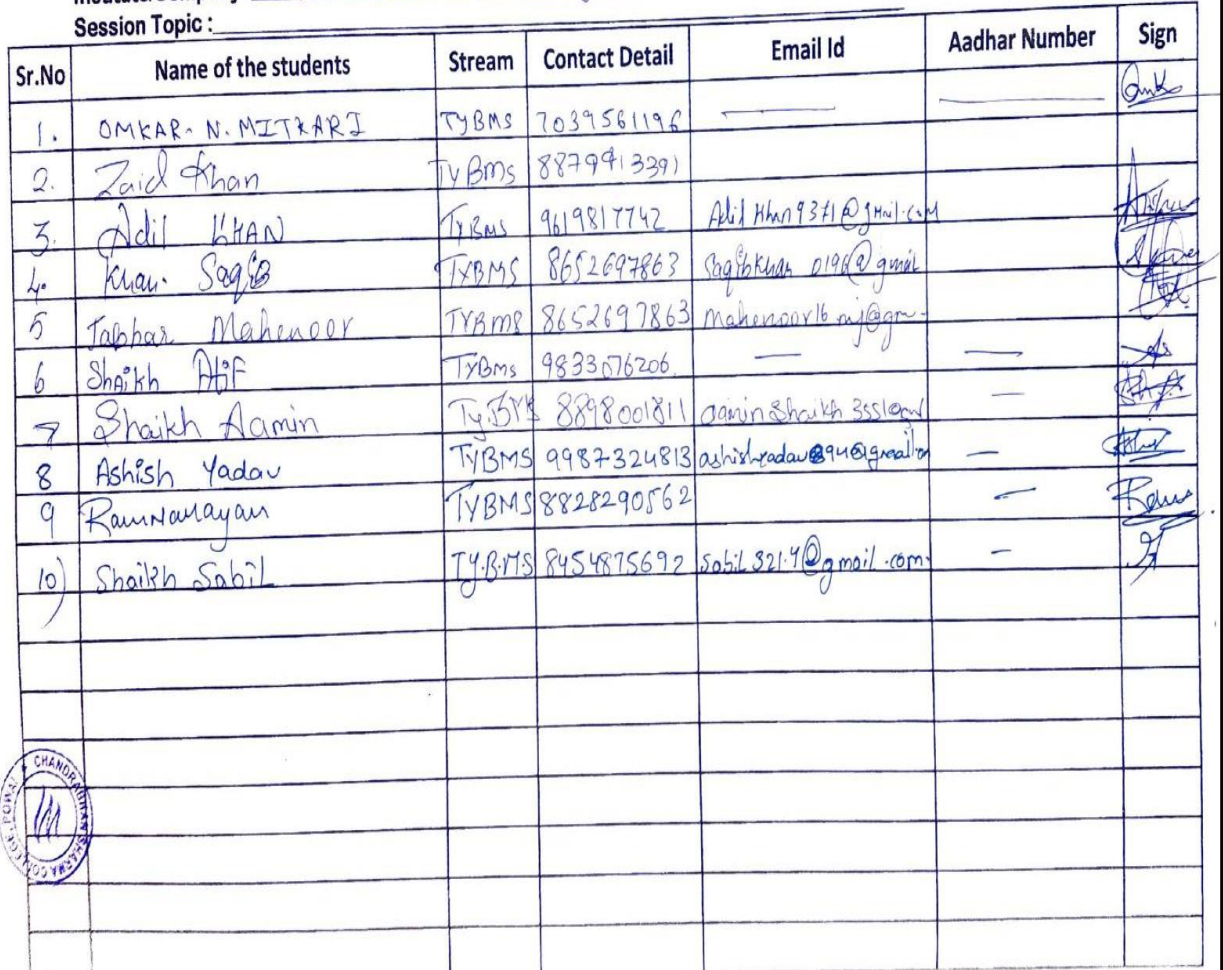 Session Topic :
Sr.No Name of the students Stream Contact Detail Email Id Aadhar Number Sign
1. OMKAR. N. MITKARI TYBMS 7039561196 —— ——
2. Zaid Khan TyBms 8879913391
3. Adil KHAN TYBMS 9619817742 Adil Khan9371@gmail.com
4. Khan. Saqib TYBMS 8652697863 Saqibkhan 0196@gmail
5 Jabbar Mahenoor TYBMS 8652697863 mahenoor16.mj@gm-
6 Shaikh Atif TYBms 9833076206 — —
7 Shaikh Aamin Ty.BMS 8898001811 aaminshaikh 355@gm —
8 Ashish Yadav TYBMS 9987324813 —
9 RamNarayan TYBMS 8828290562 —
10) Shaikh Sabil T.Y.B.M.S 8454875692 sabil.321.4@gmail.com. —
CHANDRABHAN SHARMA COLLEGE, POWAI